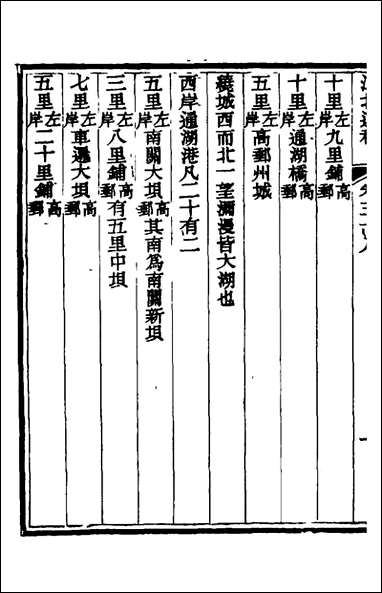 十里左岸九里鋪高郵
十里左岸通湖橋高郵
五里左岸高郵州城
繞城西而北一望瀰漫皆大湖也
西岸通湖港凡二十有二
五里左岸南關大垻高郵其南爲南關新垻
三里左岸八里鋪高郵有五里中垻
七里左岸車邏大垻高郵
五里左岸二十里鋪高郵